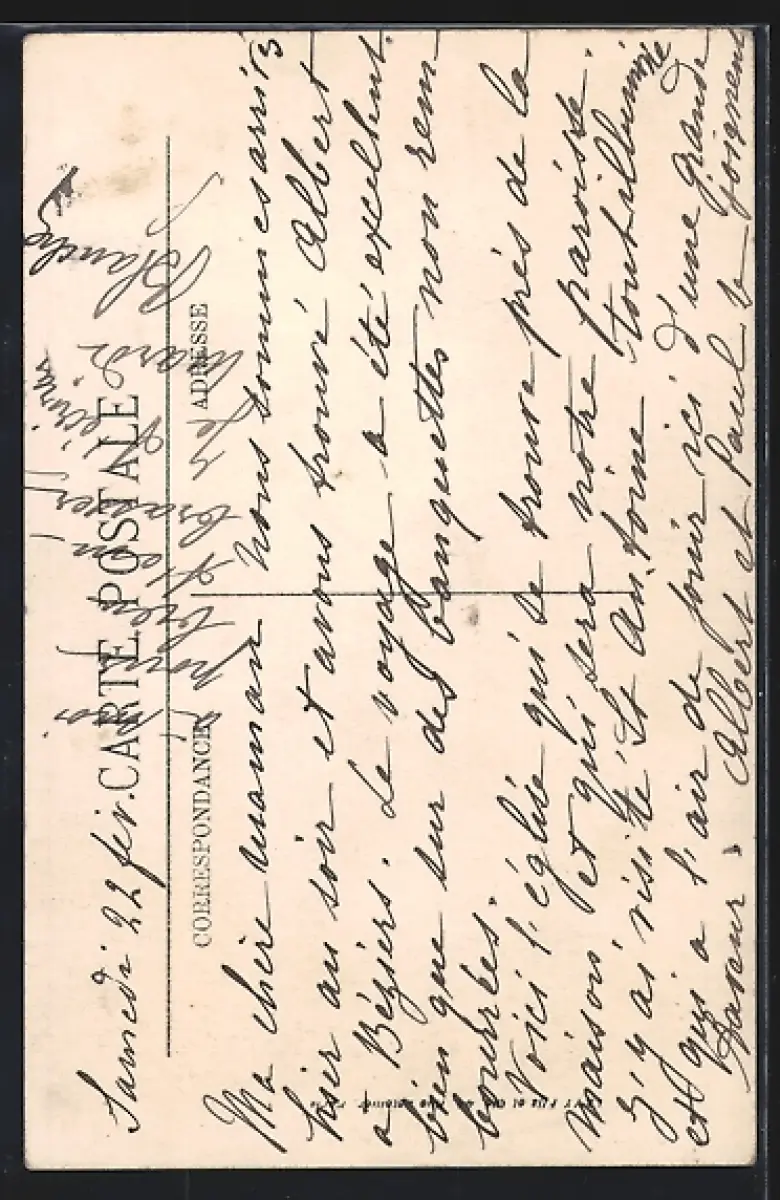 Samedi 22 fév.
CARTE POSTALE
CORRESPONDANCE
ADRESSE
Ma chère maman nous sommes arrivés
hier au soir et avons trouvé Albert
a Béziers. Le voyage a été excellent
bien que sur des banquettes non rem-
bourrées.
Voici l'église qui se trouve près de la
maison et qui sera notre paroisse.
J'y ai visité St Antoine tout illuminé
et qui a l'air de jouir ici d'une grande
faveur. Albert et Paul se joignent
à
pour
bien
t'embrasser
Je
mardi
Blanche